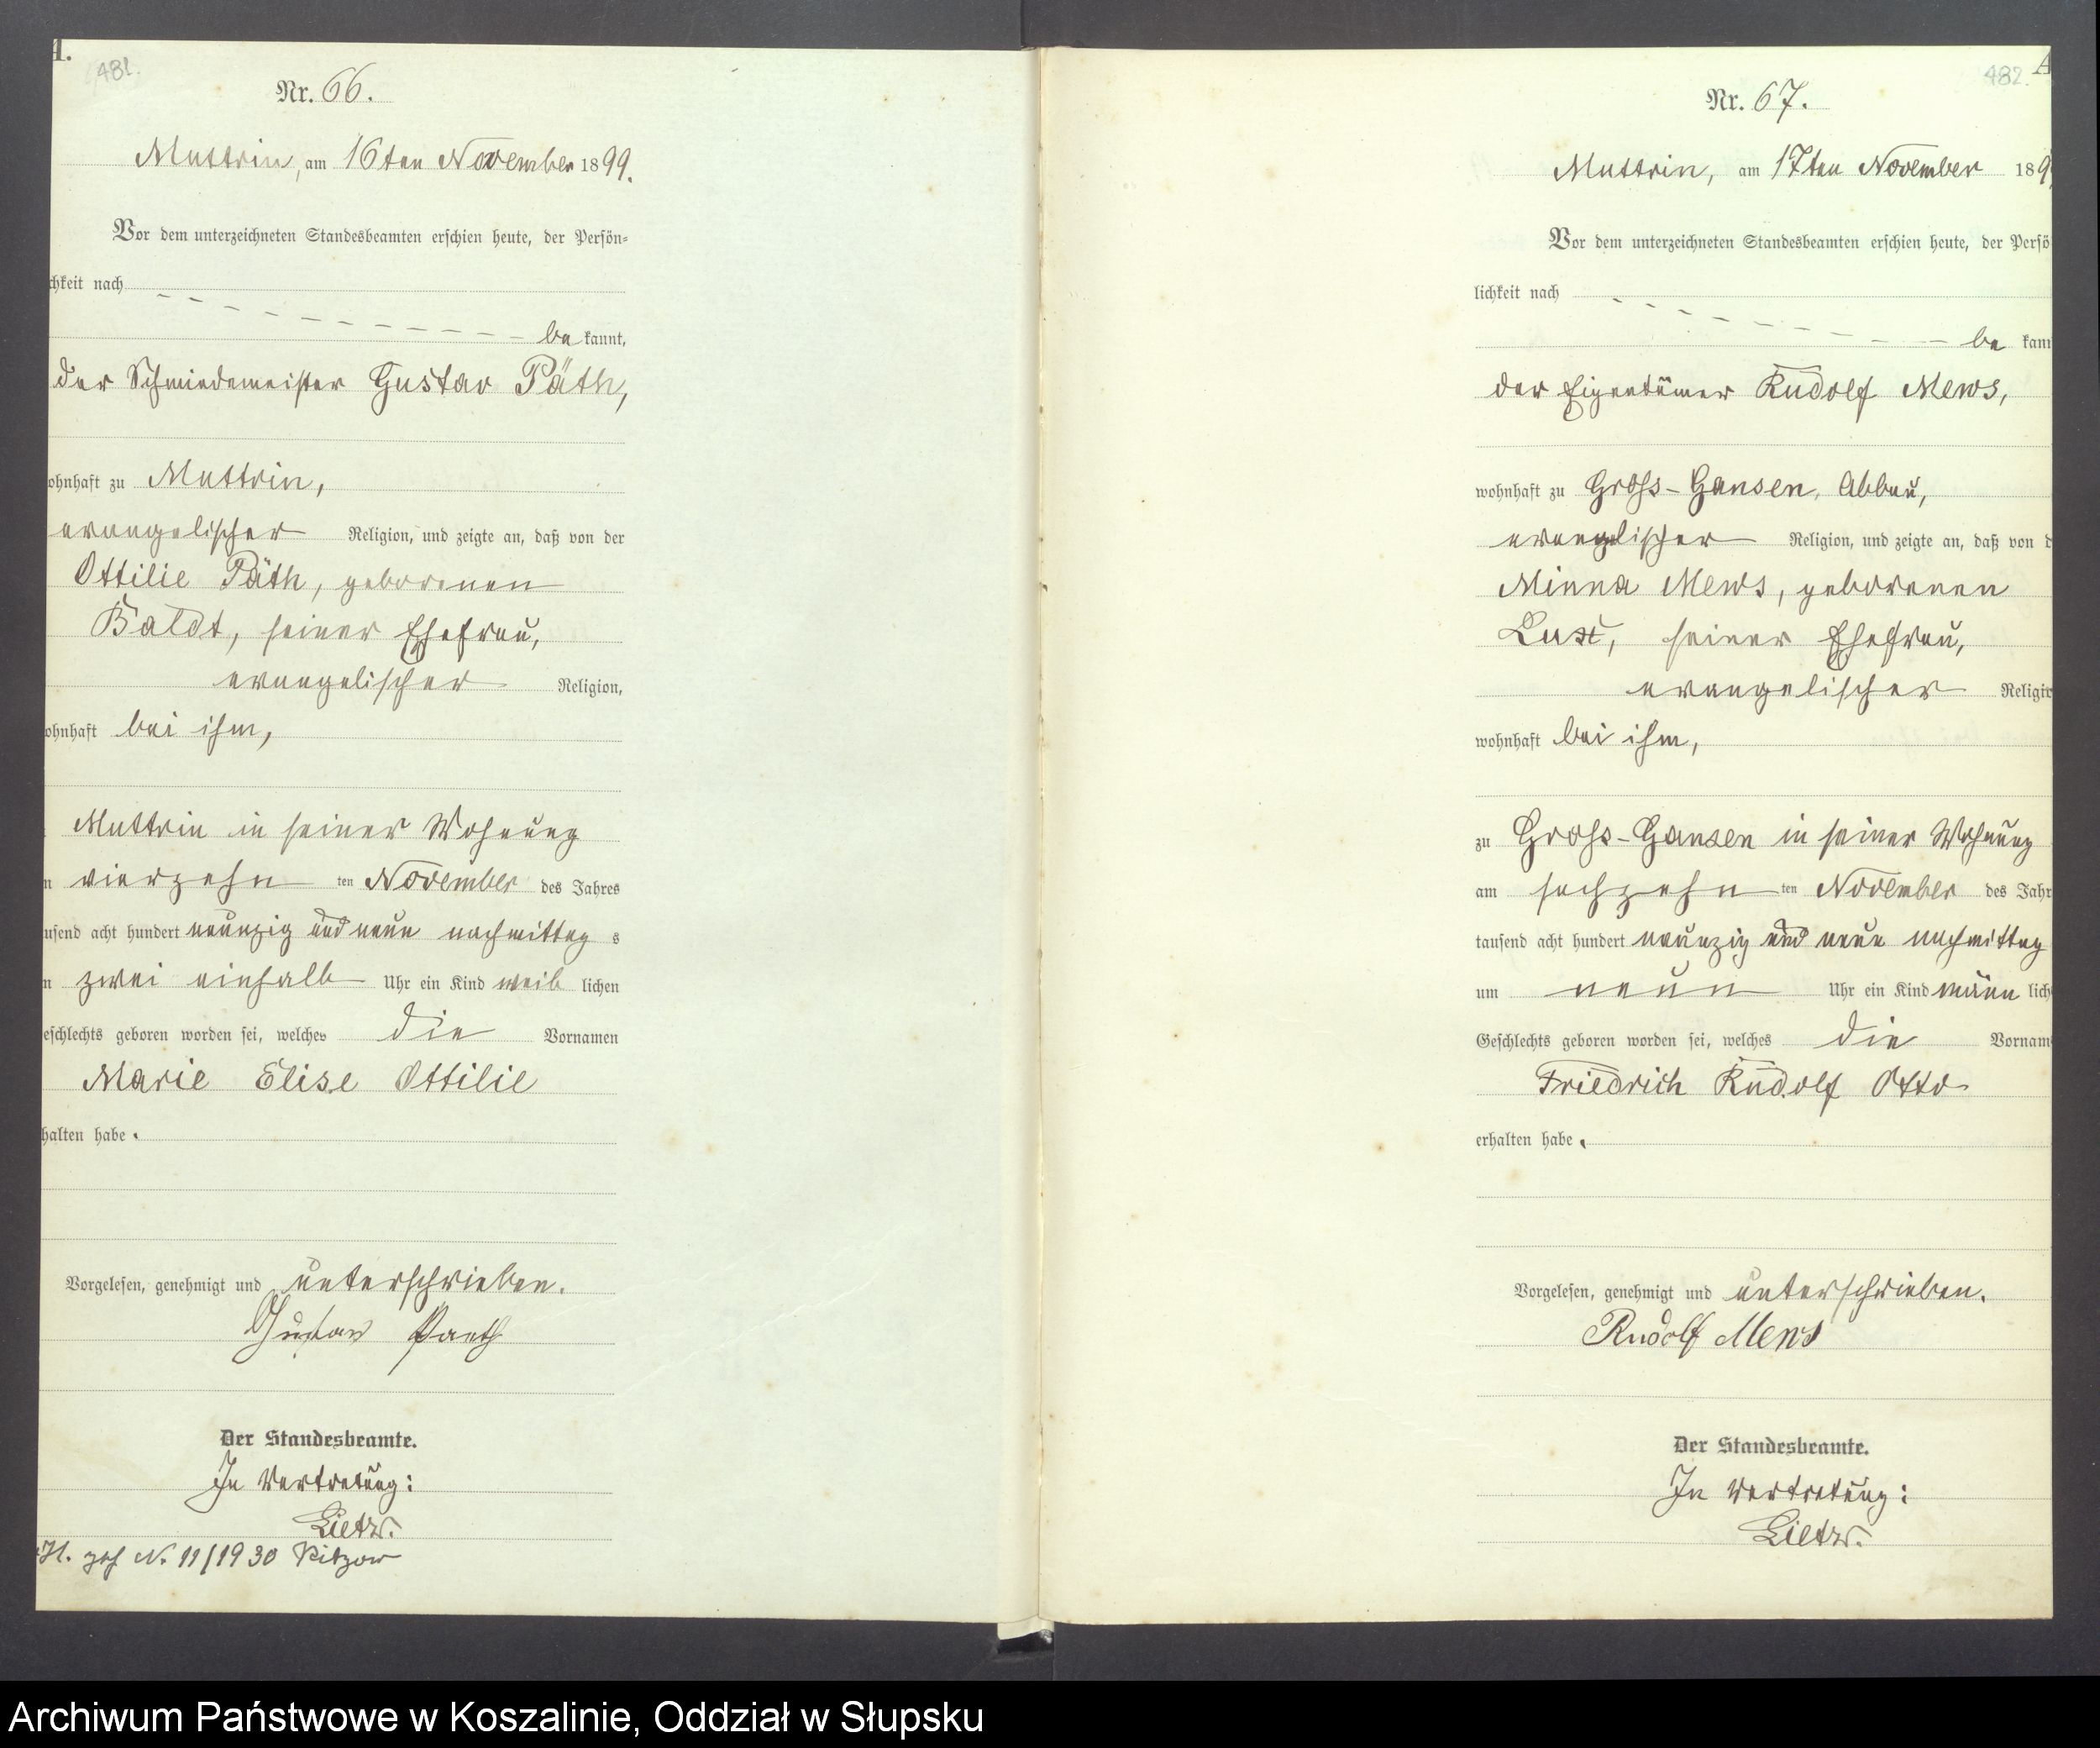 481.
Nr. 66.
Muttrin, am 16ten November 1899.
Vor dem unterzeichneten Standesbeamten erschien heute, der Persön-
chkeit nach
be kannt,
der Schmiedemeister Gustav Päth,
ohnhaft zu Muttrin,
evangelischer Religion, und zeigte an, daß von der
Ottilie Päth, geborenen
Baldt, seiner Ehefrau,
evangelischer Religion,
ohnhaft bei ihm,
Muttrin in seiner Wohnung
vierzehn ten November des Jahres
usend acht hundert neunzig und neun nachmittag s
zwei einhalb Uhr ein Kind weib lichen
eschlechts geboren worden sei, welches die Vornamen
Marie Elise Ottilie
halten habe.
Vorgelesen, genehmigt und unterschrieben.
Gustav Paeth
Der Standesbeamte.
In Vertretung:
Lietz.
H. No. 11/1930 Ritzow
482. A
Nr. 67.
Muttrin, am 17ten November 189
Vor dem unterzeichneten Standesbeamten erschien heute, der Persö
lichkeit nach
be kann
der Eigentümer Rudolf Mews,
wohnhaft zu Gross-Gansen, Abbau,
evangelischer Religion, und zeigte an, daß von d
Minna Mews, geborenen
Lust, seiner Ehefrau,
evangelischer Religio
wohnhaft bei ihm,
zu Gross-Gansen in seiner Wohnung
am sechzehn ten November des Jahr
tausend acht hundert neunzig und neun nachmittag
um neun Uhr ein Kind männ lich
Geschlechts geboren worden sei, welches die Vornam
Friedrich Rudolf Otto
erhalten habe.
Vorgelesen, genehmigt und unterschrieben.
Rudolf Mews
Der Standesbeamte.
In Vertretung:
Lietz.
Archiwum Państwowe w Koszalinie, Oddział w Słupsku